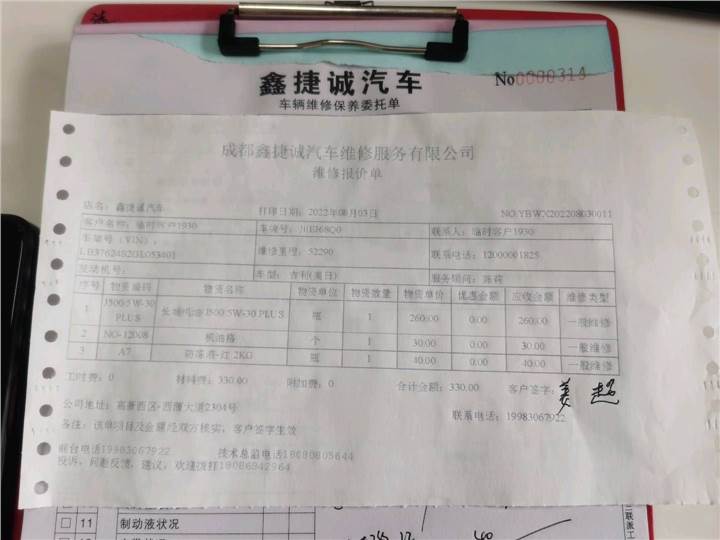 鑫捷诚汽车
No 0000314
车辆维修保养委托单
成都鑫捷诚汽车维修服务有限公司
维修报价单
店名：鑫捷诚汽车 打印日期：2022年08月03日 NO:YBWX202208030011
客户名称：临时客户1930 车牌号：川E J68Q0 联系人：临时客户1930
车架号（VIN）：
LB37624S2GL053401 维修里程：52290 联系电话：12000001825
发动机号： 车型：吉利(美日) 服务顾问：
序号 物资编码 物资名称 物资单位 物资数量 物资单价 优惠金额 应收金额 维修类型
1 J500/5W-30 PLUS 长城电喷J500/5W-30 PLUS 瓶 1 260.00 0.00 260.00 一般维修
2 NO-12008 机油格 个 1 30.00 0.00 30.00 一般维修
3 A7 防冻液-红 2KG 瓶 1 40.00 0.00 40.00 一般维修
工时费：0 材料费：330.00 附加费：0 合计金额：330.00 客户签字：姜超
公司地址：高新西区-西源大道2304号 联系电话：19983067922
备注：该单项目及金额经双方核实，客户签字生效
前台电话19983067922 技术总监电话18080805644
投诉，问题反馈，建议，欢迎拨打18086842964
11 制动液状况
三联派工